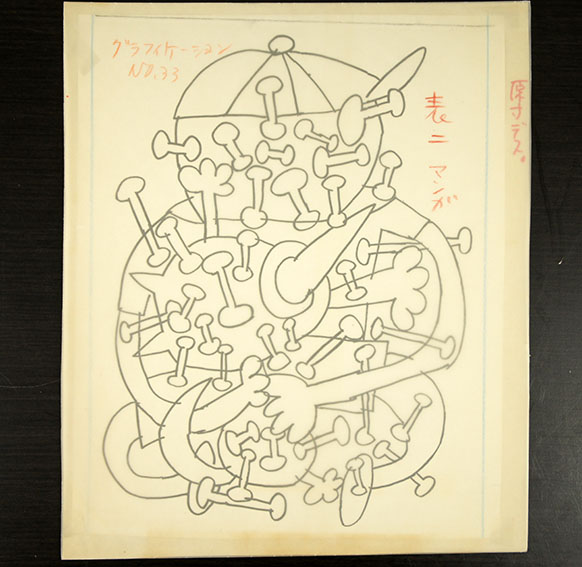 グラフィケーション
No.33
表二 マンガ
原寸デス。